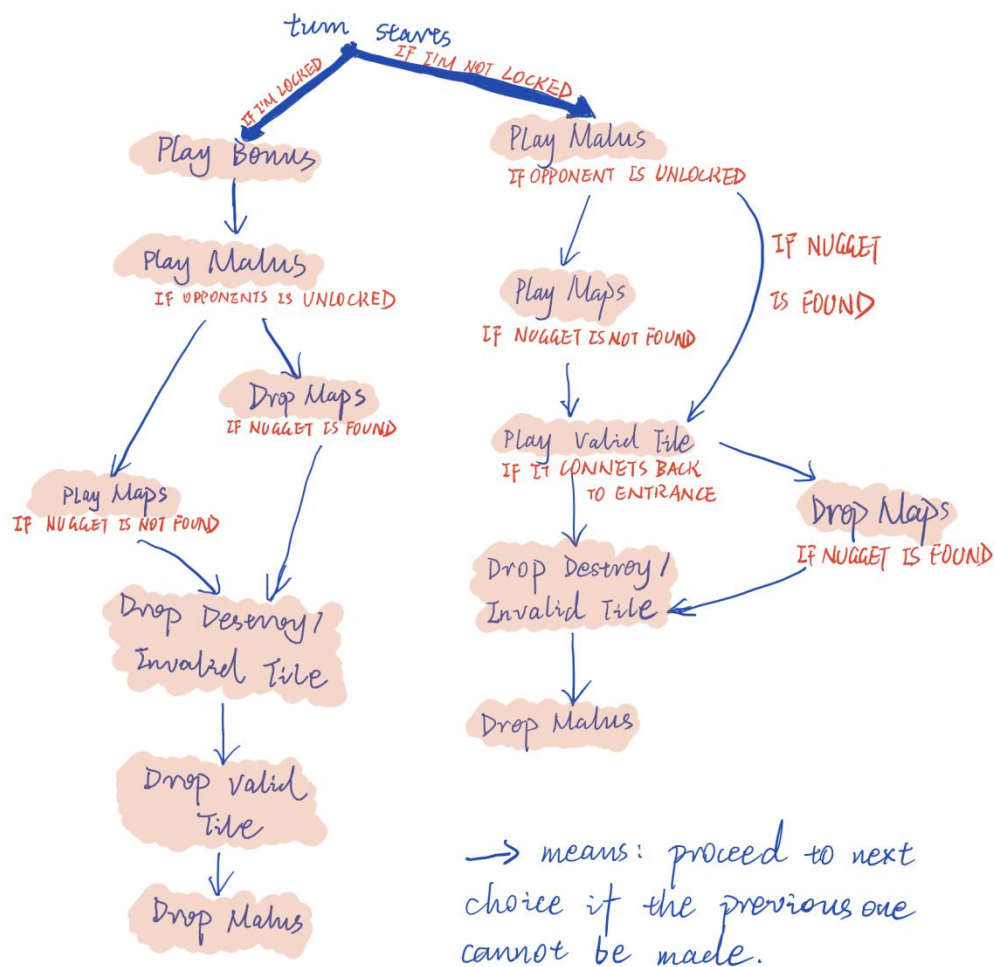 turn starts
IF I'M LOCKED
IF I'M NOT LOCKED
Play Bonus
Play Malus
IF OPPONENTS IS UNLOCKED
Drop Maps
IF NUGGET IS FOUND
Play Maps
IF NUGGET IS NOT FOUND
Drop Destroy/
Invalid Tile
Drop Valid
Tile
Drop Malus
Play Malus
IF OPPONENT IS UNLOCKED
IF NUGGET
IS FOUND
Play Maps
IF NUGGET IS NOT FOUND
Play Valid Tile
IF IT CONNETS BACK
TO ENTRANCE
Drop Maps
IF NUGGET IS FOUND
Drop Destroy/
Invalid Tile
Drop Malus
→ means: proceed to next
choice if the previous one
cannot be made.